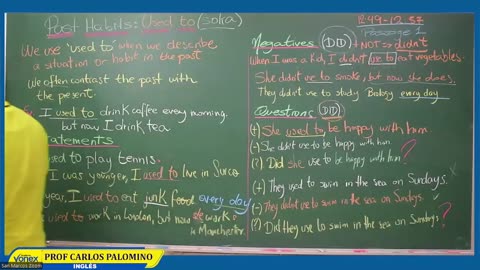 Past Habits: Used to (solía)
We use 'used to' when we describe
a situation or habit in the past
We often contrast the past with
the present.
I used to drink coffee every morning.
but now I drink tea
tatements
used to play tennis.
I was younger, I used to live in Surco
year, I used to eat junk food every day
used to work in London, but now work
in Manchester
12:49-12:57
Passage 1
Negatives (DID)
NOT → didn't
When I was a kid, I didn't use to eat vegetables.
She didn't use to smoke, but now she does.
They didn't use to study Biology every day
Questions (DID)
(+) She used to be happy with him
(-) She didn't use to be happy with him.
(?) Did she use to be happy with him?
(+) They used to swim in the sea on Sundays.
(-) They didn't use to swim in the sea on Sundays.
(?) Did they use to swim in the sea on Sundays?
VONEX
San Marcos Zoom
PROF CARLOS PALOMINO
INGLÉS